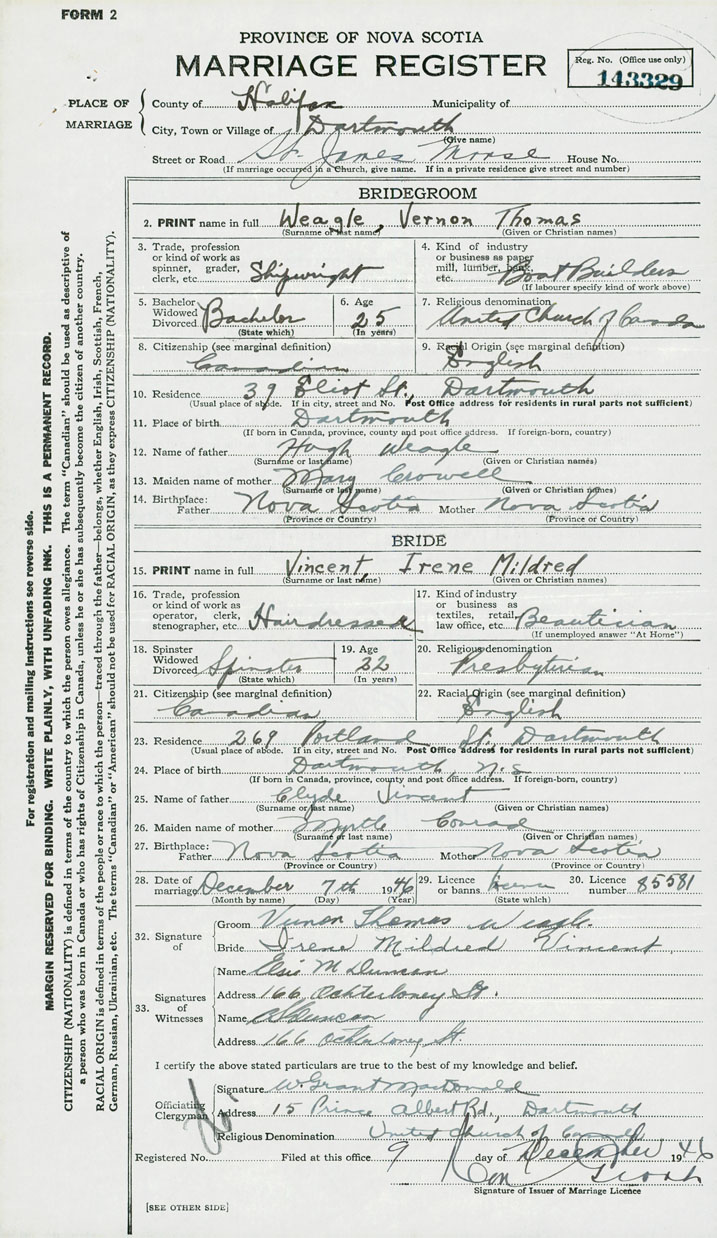 FORM 2
PROVINCE OF NOVA SCOTIA
MARRIAGE REGISTER
Reg. No. (Office use only)
143329
PLACE OF MARRIAGE
County of Halifax Municipality of
City, Town or Village of Dartmouth
(Give name)
Street or Road St. James Manse House No.
(If marriage occurred in a Church, give name. If in a private residence give street and number)
BRIDEGROOM
2. PRINT name in full Weagle, Vernon Thomas
(Surname or last name) (Given or Christian names)
3. Trade, profession or kind of work as spinner, grader, clerk, etc. Shipwright
4. Kind of industry or business as paper mill, lumber, bank, etc. Boat Builders
(If labourer specify kind of work above)
5. Bachelor Widowed Divorced Bachelor (State which)
6. Age 25 (In years)
7. Religious denomination United Church of Canada
8. Citizenship (see marginal definition) Canadian
9. Racial Origin (see marginal definition) English
10. Residence 39 Eliot St., Dartmouth
(Usual place of abode. If in city, street and No. Post Office address for residents in rural parts not sufficient)
11. Place of birth Dartmouth
(If born in Canada, province, county and post office address. If foreign-born, country)
12. Name of father Hugh Weagle
(Surname or last name) (Given or Christian names)
13. Maiden name of mother Mary Crowell
(Surname or last name) (Given or Christian names)
14. Birthplace: Father Nova Scotia Mother Nova Scotia
(Province or Country) (Province or Country)
BRIDE
15. PRINT name in full Vincent, Irene Mildred
(Surname or last name) (Given or Christian names)
16. Trade, profession or kind of work as operator, clerk, stenographer, etc. Hairdresser
17. Kind of industry or business as textiles, retail, law office, etc. Beautician
(If unemployed answer "At Home")
18. Spinster Widowed Divorced Spinster (State which)
19. Age 22 (In years)
20. Religious denomination Presbyterian
21. Citizenship (see marginal definition) Canadian
22. Racial Origin (see marginal definition) English
23. Residence 269 Portland St. Dartmouth
(Usual place of abode. If in city, street and No. Post Office address for residents in rural parts not sufficient)
24. Place of birth Dartmouth, N.S
(If born in Canada, province, county and post office address. If foreign-born, country)
25. Name of father Clyde Vincent
(Surname or last name) (Given or Christian names)
26. Maiden name of mother Myrtle Conrad
(Surname or last name) (Given or Christian names)
27. Birthplace: Father Nova Scotia Mother Nova Scotia
(Province or Country) (Province or Country)
28. Date of marriage December 7th 1946
(Month by name) (Day) (Year)
29. Licence or banns licence
(State which)
30. Licence number 85581
32. Signature of
Groom Vernon Thomas Weagle.
Bride Irene Mildred Vincent
33. Signatures of Witnesses
Name Elsie M Duncan
Address 166 Ochterloney St.
Name Duncan
Address 166 Ochterloney St.
I certify the above stated particulars are true to the best of my knowledge and belief.
Officiating Clergyman
Signature W. Grant MacDonald
Address 15 Prince Albert Rd., Dartmouth
Religious Denomination United Church of Canada
Registered No. Filed at this office 9 day of December 1946
Signature of Issuer of Marriage Licence
[SEE OTHER SIDE]
For registration and mailing instructions see reverse side.
MARGIN RESERVED FOR BINDING. WRITE PLAINLY, WITH UNFADING INK. THIS IS A PERMANENT RECORD.
CITIZENSHIP (NATIONALITY) is defined in terms of the country to which the person owes allegiance. The term "Canadian" should be used as descriptive of
a person who was born in Canada or who has rights of Citizenship in Canada, unless he or she has subsequently become the citizen of another country.
RACIAL ORIGIN is defined in terms of the people or race to which the person—traced through the father—belongs, whether English, Irish, Scottish, French,
German, Russian, Ukrainian, etc. The terms "Canadian" or "American" should not be used for RACIAL ORIGIN, as they express CITIZENSHIP (NATIONALITY).